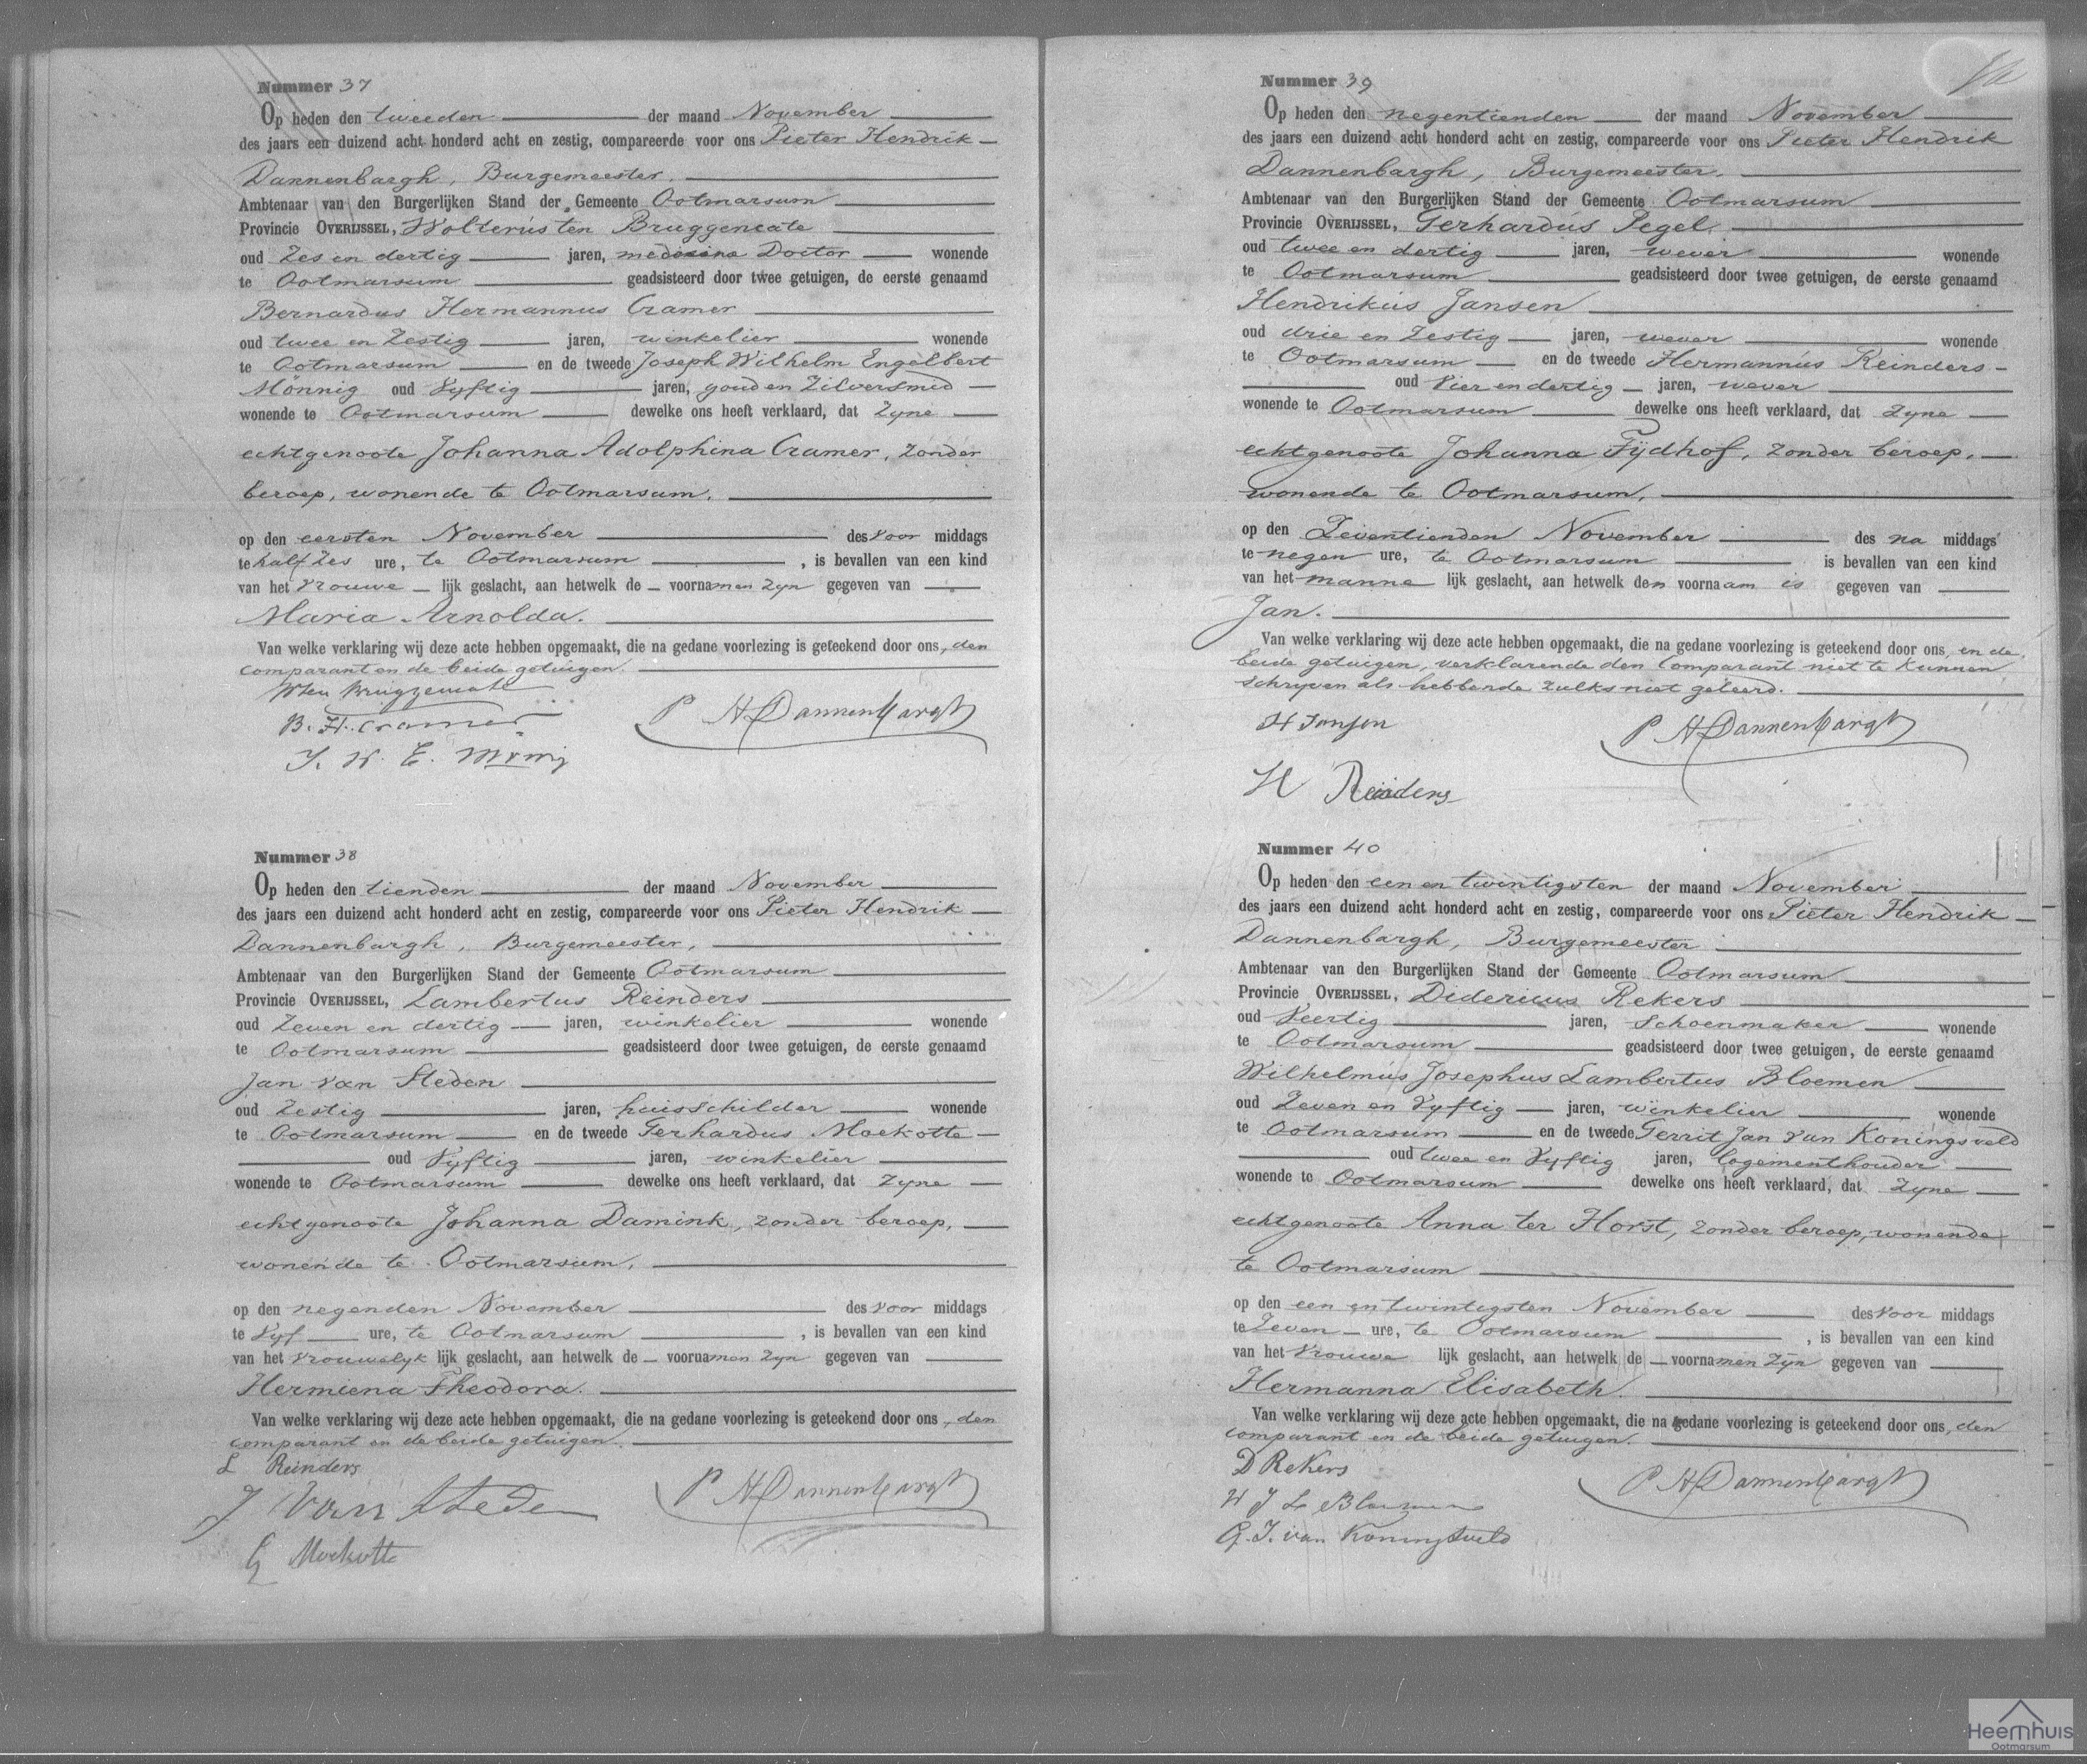 Nummer 37
Op heden den tweeden der maand November
des jaars een duizend acht honderd acht en zestig, compareerde voor ons Pieter Hendrik
Dannenbargh, Burgemeester.
Ambtenaar van den Burgerlijken Stand der Gemeente Ootmarsum
Provincie OVERIJSSEL, Wolterus ten Bruggencate
oud Zes en dertig jaren, medicina Doctor wonende
te Ootmarsum geadsisteerd door twee getuigen, de eerste genaamd
Bernardus Hermannus Cramer
oud twee en Zestig jaren, winkelier wonende
te Ootmarsum en de tweede Joseph Wilhelm Engelbert
Mönnig oud Vyftig jaren, goud en Zilversmid
wonende te Ootmarsum dewelke ons heeft verklaard, dat Zyne
echtgenoote Johanna Adolphina Cramer, Zonder
beroep, wonende te Ootmarsum.
op den eersten November des voor middags
te half Zes ure, te Ootmarsum, is bevallen van een kind
van het Vrouwe lijk geslacht, aan hetwelk de voornamen Zyn gegeven van
Maria Arnolda.
Van welke verklaring wij deze acte hebben opgemaakt, die na gedane voorlezing is geteekend door ons, den
comparant en de beide getuigen.
WtenBruggencate
B. H. Cramer
P H Dannenbargh
J. W. E. Mönnig
Nummer 38
Op heden den tienden der maand November
des jaars een duizend acht honderd acht en zestig, compareerde voor ons Pieter Hendrik
Dannenbargh, Burgemeester,
Ambtenaar van den Burgerlijken Stand der Gemeente Ootmarsum
Provincie OVERIJSSEL, Lambertus Reinders
oud Zeven en dertig jaren, winkelier wonende
te Ootmarsum geadsisteerd door twee getuigen, de eerste genaamd
Jan van Steden
oud Zestig jaren, huisschilder wonende
te Ootmarsum en de tweede Gerhardus Moekotte
oud Vyftig jaren, winkelier
wonende te Ootmarsum dewelke ons heeft verklaard, dat Zyne
echtgenoote Johanna Damink, zonder beroep,
wonende te Ootmarsum.
op den negenden November des voor middags
te Vyf ure, te Ootmarsum, is bevallen van een kind
van het Vrouwelyk lijk geslacht, aan hetwelk de voornamen Zyn gegeven van
Hermiena Theodora.
Van welke verklaring wij deze acte hebben opgemaakt, die na gedane voorlezing is geteekend door ons, den
comparant en de beide getuigen.
L Reinders
J van Steden
P H Dannenbargh
G Moekotte
Nummer 39
Op heden den negentienden der maand November
des jaars een duizend acht honderd acht en zestig, compareerde voor ons Pieter Hendrik
Dannenbargh, Burgemeester.
Ambtenaar van den Burgerlijken Stand der Gemeente Ootmarsum
Provincie OVERIJSSEL, Gerhardus Pegel.
oud twee en dertig jaren, wever wonende
te Ootmarsum geadsisteerd door twee getuigen, de eerste genaamd
Hendrikus Jansen
oud drie en Zestig jaren, wever wonende
te Ootmarsum en de tweede Hermannus Reinders
oud Vier en dertig jaren, wever
wonende te Ootmarsum dewelke ons heeft verklaard, dat Zyne
echtgenoote Johanna Tijdhof, Zonder beroep,
wonende te Ootmarsum.
op den Zeventienden November des na middags
te negen ure, te Ootmarsum is bevallen van een kind
van het manne lijk geslacht, aan hetwelk den voornaam is gegeven van
Jan.
Van welke verklaring wij deze acte hebben opgemaakt, die na gedane voorlezing is geteekend door ons, en de
beide getuigen, verklarende den Comparant niet te kunnen
schrijven als hebbende zulks niet geleerd.
H Jansen
P H Dannenbargh
H Reinders
Nummer 40
Op heden den een en twintigsten der maand November
des jaars een duizend acht honderd acht en zestig, compareerde voor ons Pieter Hendrik
Dannenbargh, Burgemeester
Ambtenaar van den Burgerlijken Stand der Gemeente Ootmarsum
Provincie OVERIJSSEL, Didericus Rekers
oud Veertig jaren, Schoenmaker wonende
te Ootmarsum geadsisteerd door twee getuigen, de eerste genaamd
Wilhelmus Josephus Lambertus Bloemen
oud Zeven en Vyftig jaren, winkelier wonende
te Ootmarsum en de tweede Gerrit Jan van Koningsveld
oud twee en Vyftig jaren, logementhouder
wonende te Ootmarsum dewelke ons heeft verklaard, dat Zyne
echtgenoote Anna ter Horst, Zonder beroep, wonende
te Ootmarsum
op den een en twintigsten November des voor middags
te Zeven ure, te Ootmarsum, is bevallen van een kind
van het Vrouwe lijk geslacht, aan hetwelk de voornamen Zyn gegeven van
Hermanna Elisabeth.
Van welke verklaring wij deze acte hebben opgemaakt, die na gedane voorlezing is geteekend door ons, den
comparant en de beide getuigen.
D Rekers
P H Dannenbargh
W J L Bloemen
G. J. van Koningsveld
Heemhuis
Ootmarsum